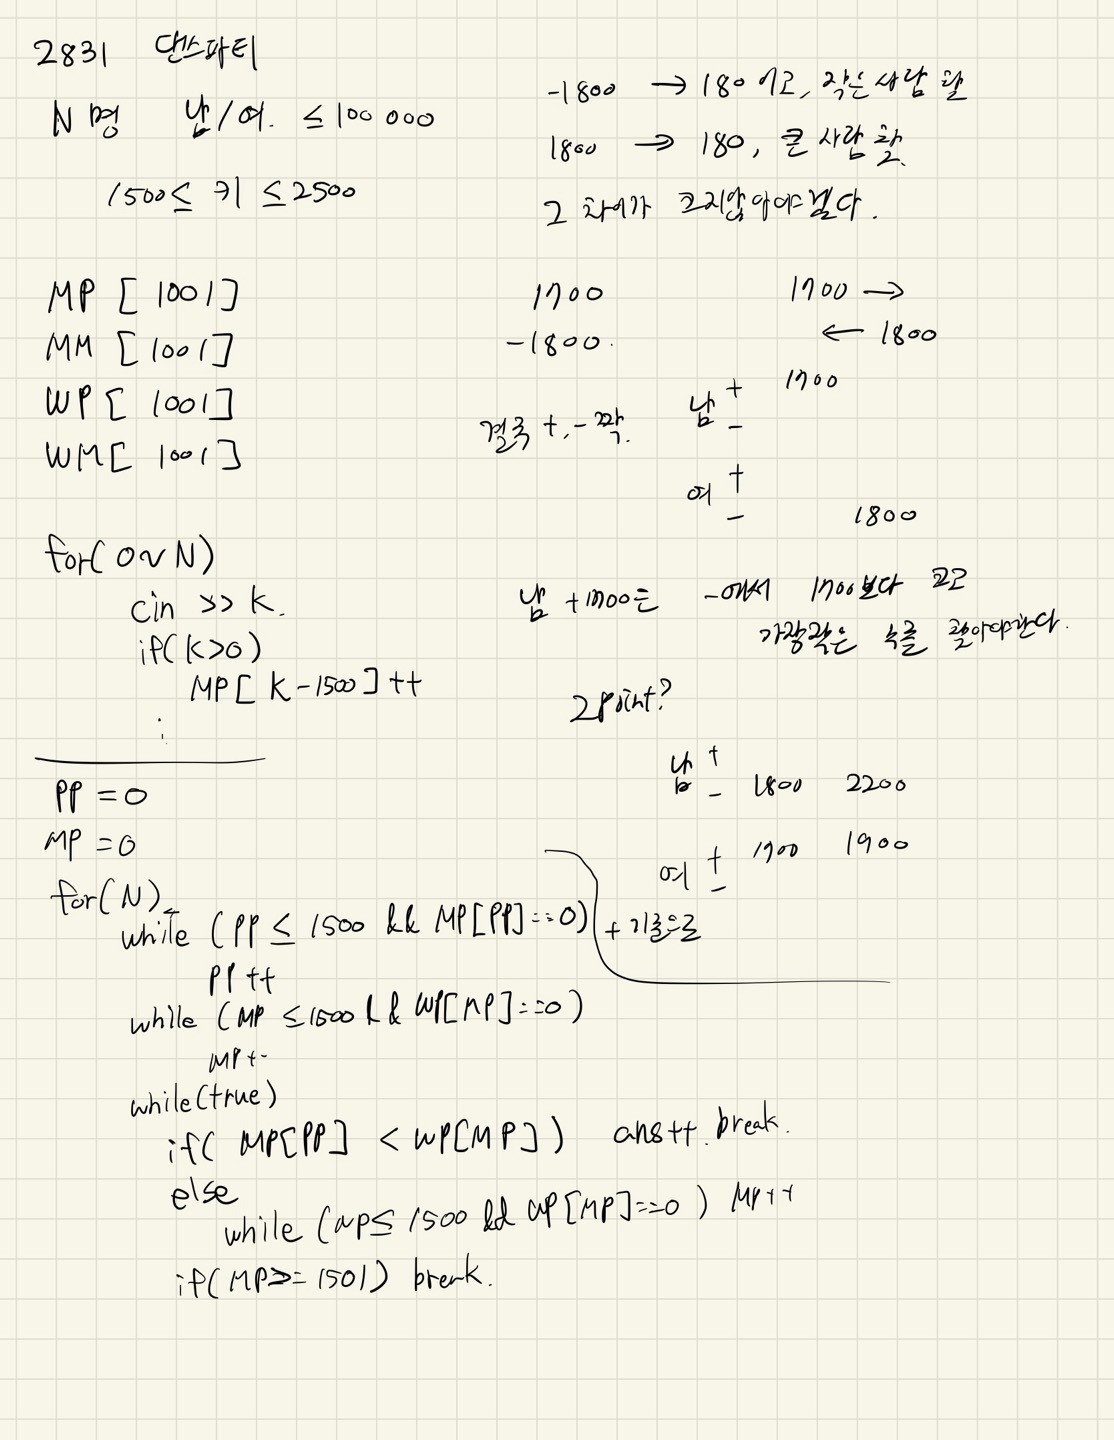 2831 댄스파티
N 명 남/여. ≤ 100 000
1500 ≤ 키 ≤ 2500
-1800 → 180 이고, 작은 사람 찾
1800 → 180, 큰 사람 찾.
그 차이가 크지않아야겠다.
MP [ 1001 ]
MM [ 1001 ]
WP [ 1001 ]
WM [ 1001 ]
1700
-1800.
결국 +, - 짝.
1700 →
← 1800
남 + 1700
-
여 +
- 1800
for( 0~N)
cin >> k.
if(k>0)
MP[ k-1500] ++
:
남 +1700은 -에서 1700보다 크고
가장작은 수를 찾아야한다.
2Point?
남 +
- 1800 2200
여 + 1700 1900
-
+ 기준으로
PP = 0
MP = 0
for(N)
while (PP ≤ 1500 && MP[PP] == 0)
PP ++
while (MP ≤ 1500 && WP[MP] == 0)
MP ++
while(true)
if( MP[PP] < WP[MP]) ans++. break.
else
while (MP ≤ 1500 && WP[MP] == 0 ) MP++
if(MP >= 1501) break.